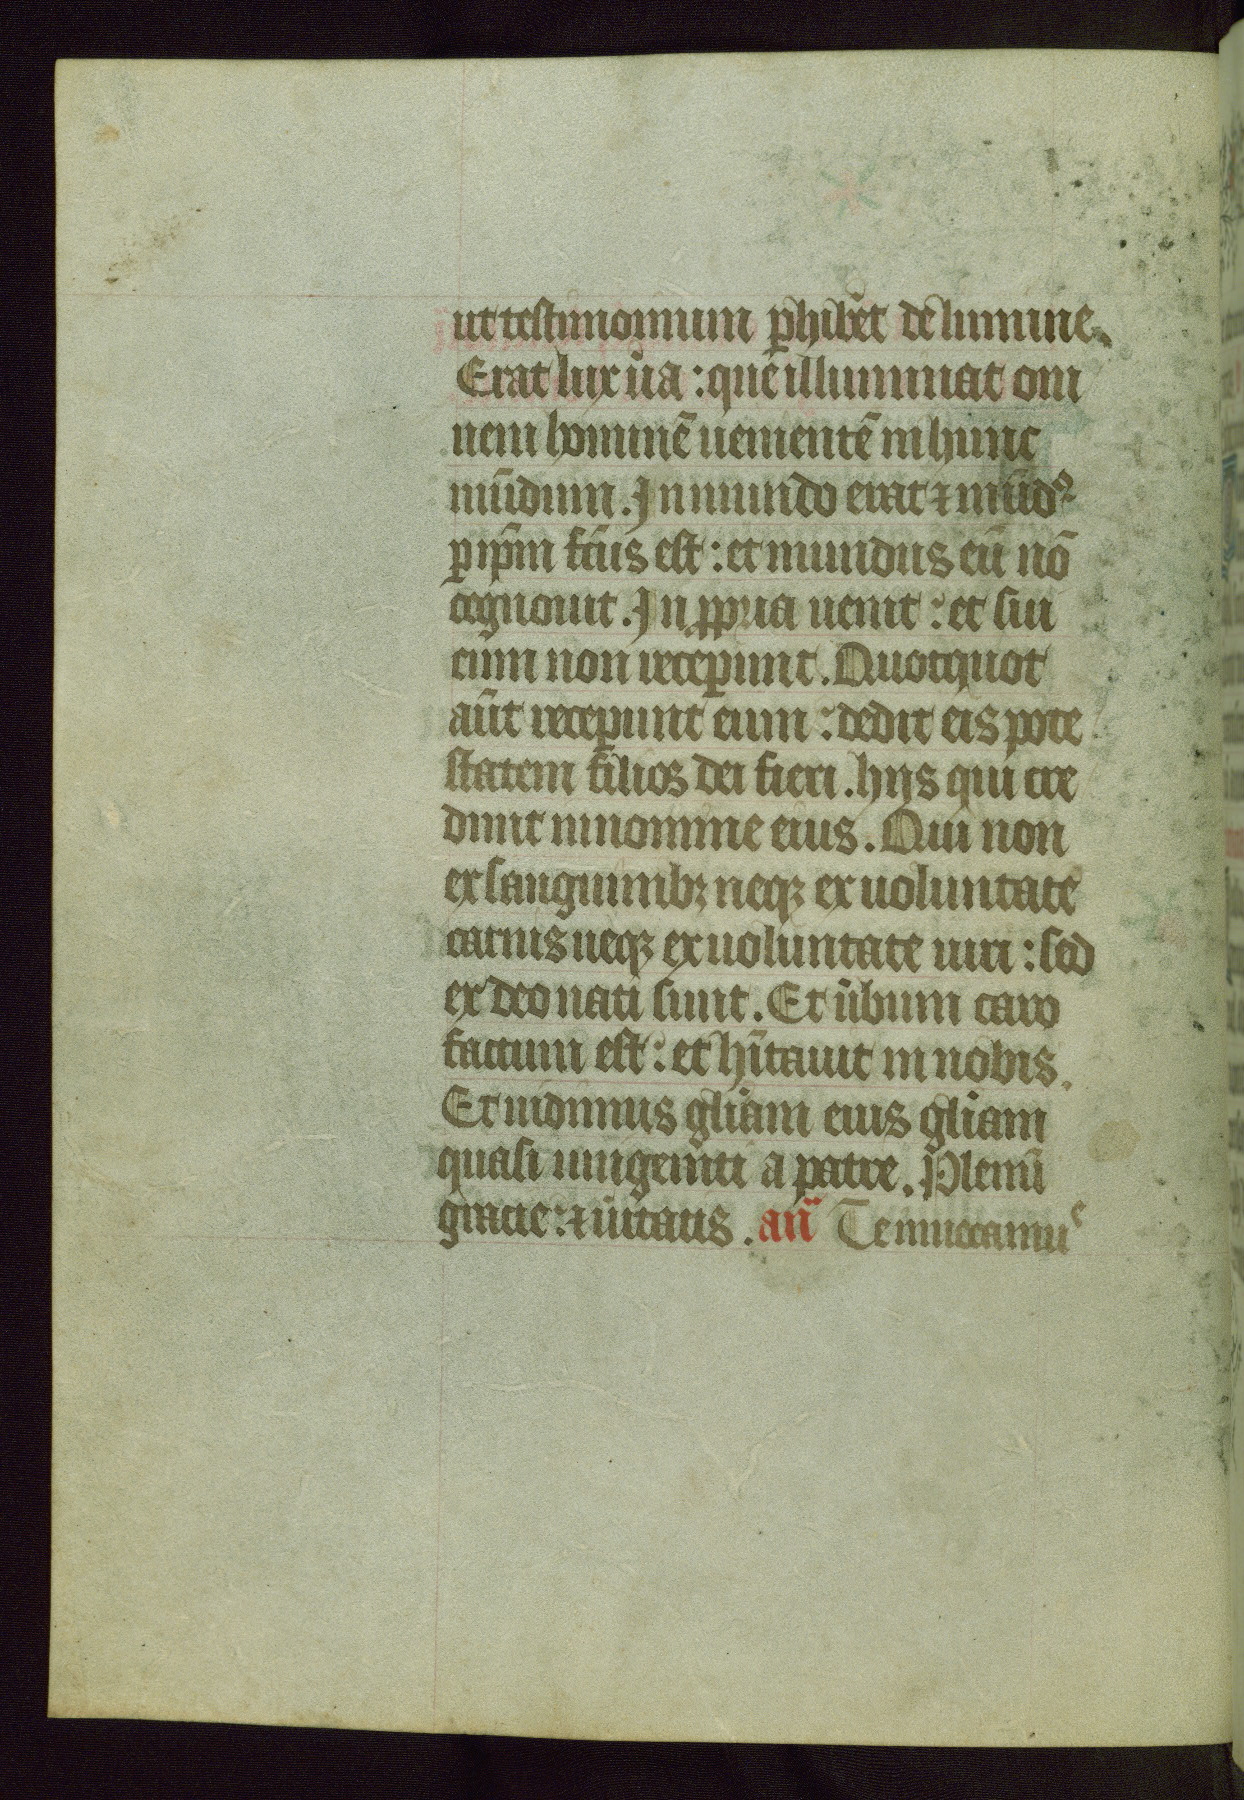 ut testimonium ꝑhibēt de lumine.
Erat lux ūa : quē illuminat om
nem hominē uenientē in hunc
mūdum. In mundo erat ⁊ mūdꝰ
ꝑ ip̄m fc̄us est : et mundus eū nō
cognouit. In ꝓpria uenit : et sui
eum non receꝑunt. Quotquot
aūt receꝑunt eum : dedit eis pote
statem filios dei fieri. hijs qui cre
dunt in nomine eius. Qui non
ex sanguinibꝫ neqꝫ ex uoluntate
carnis neqꝫ ex uoluntate uiri : sed
ex deo nati sunt. Et ūbum caro
factum est : et hītauit in nobis.
Et uidimus gliam eius gliam
quasi unigeniti a patre. Plenū
gracie : ⁊ ūitatis. an̄ Te inuocamuˢ